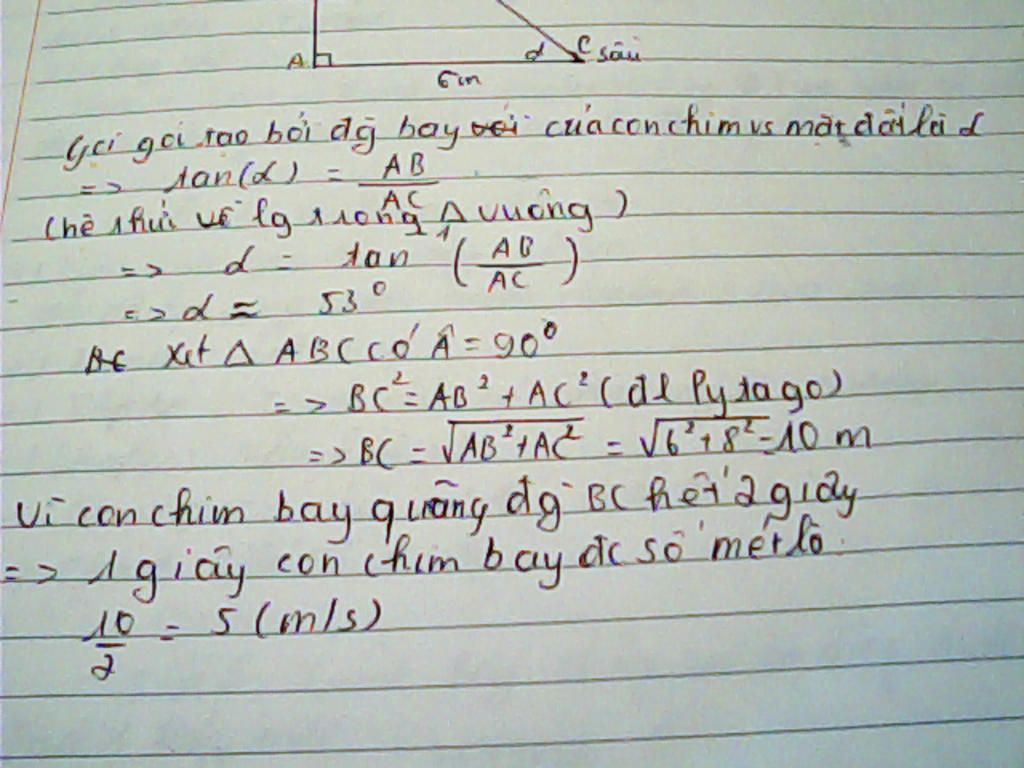 A
α
C sâu
6m
Gọi góc tạo bởi đg bay với của con chim vs mặt đất là α
=> tan(α) = AB/AC
(hệ thức về lg trong Δ vuông)
=> α = tan⁻¹ (AB/AC)
=> α ≈ 53°
Xét Δ ABC có Â = 90°
=> BC² = AB² + AC² (đl Pytago)
=> BC = √AB² + AC² = √6² + 8² = 10 m
Vì con chim bay quãng đg BC hết 2 giây
=> 1 giây con chim bay đc số mét là
10/2 = 5 (m/s)